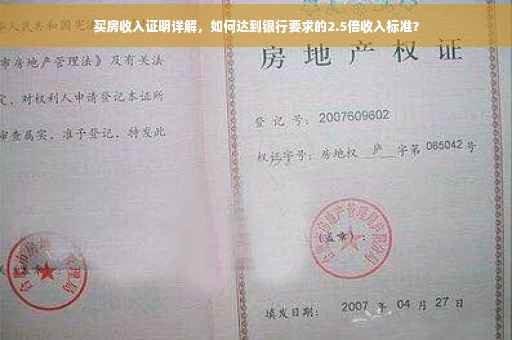 买房收入证明详解，如何达到银行要求的2.5倍收入标准？
人民共和国宪法
市房地产管理法》及有关法
定，对权利人申请登记本证所
审查属实，准予登记，特发此
房地产权证
登记号：2007609602
权证字号：房地权 庐 字第 085042 号
(盖章)：
填发日期： 2007 年 04 月 27 日